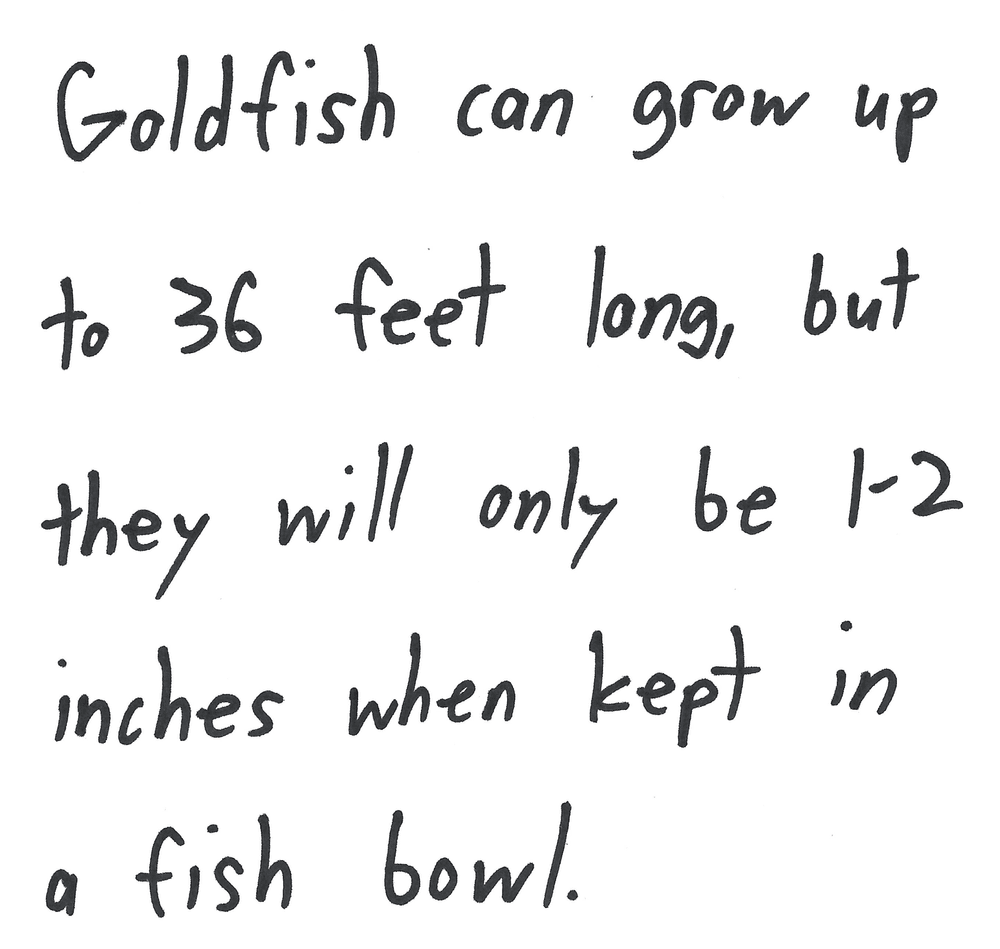 Goldfish can grow up
to 36 feet long, but
they will only be 1-2
inches when kept in
a fish bowl.